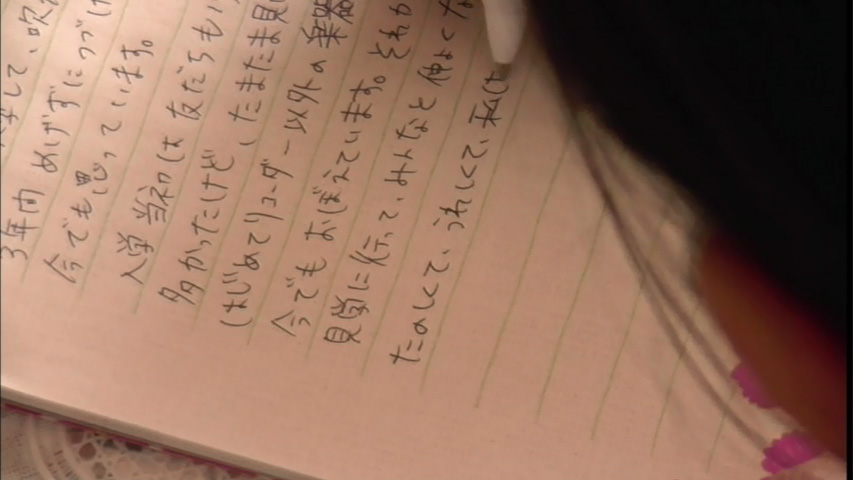 して、吹
3年間 めげずにつづけ
今でも思っています。
入学当初は友だちも
多かったけど、たまたま見
はじめてリコーダー以外の楽器
今でもおぼえています。それか
見学に行って、みんなと仲よくな
たのしくて、うれしくて、私は